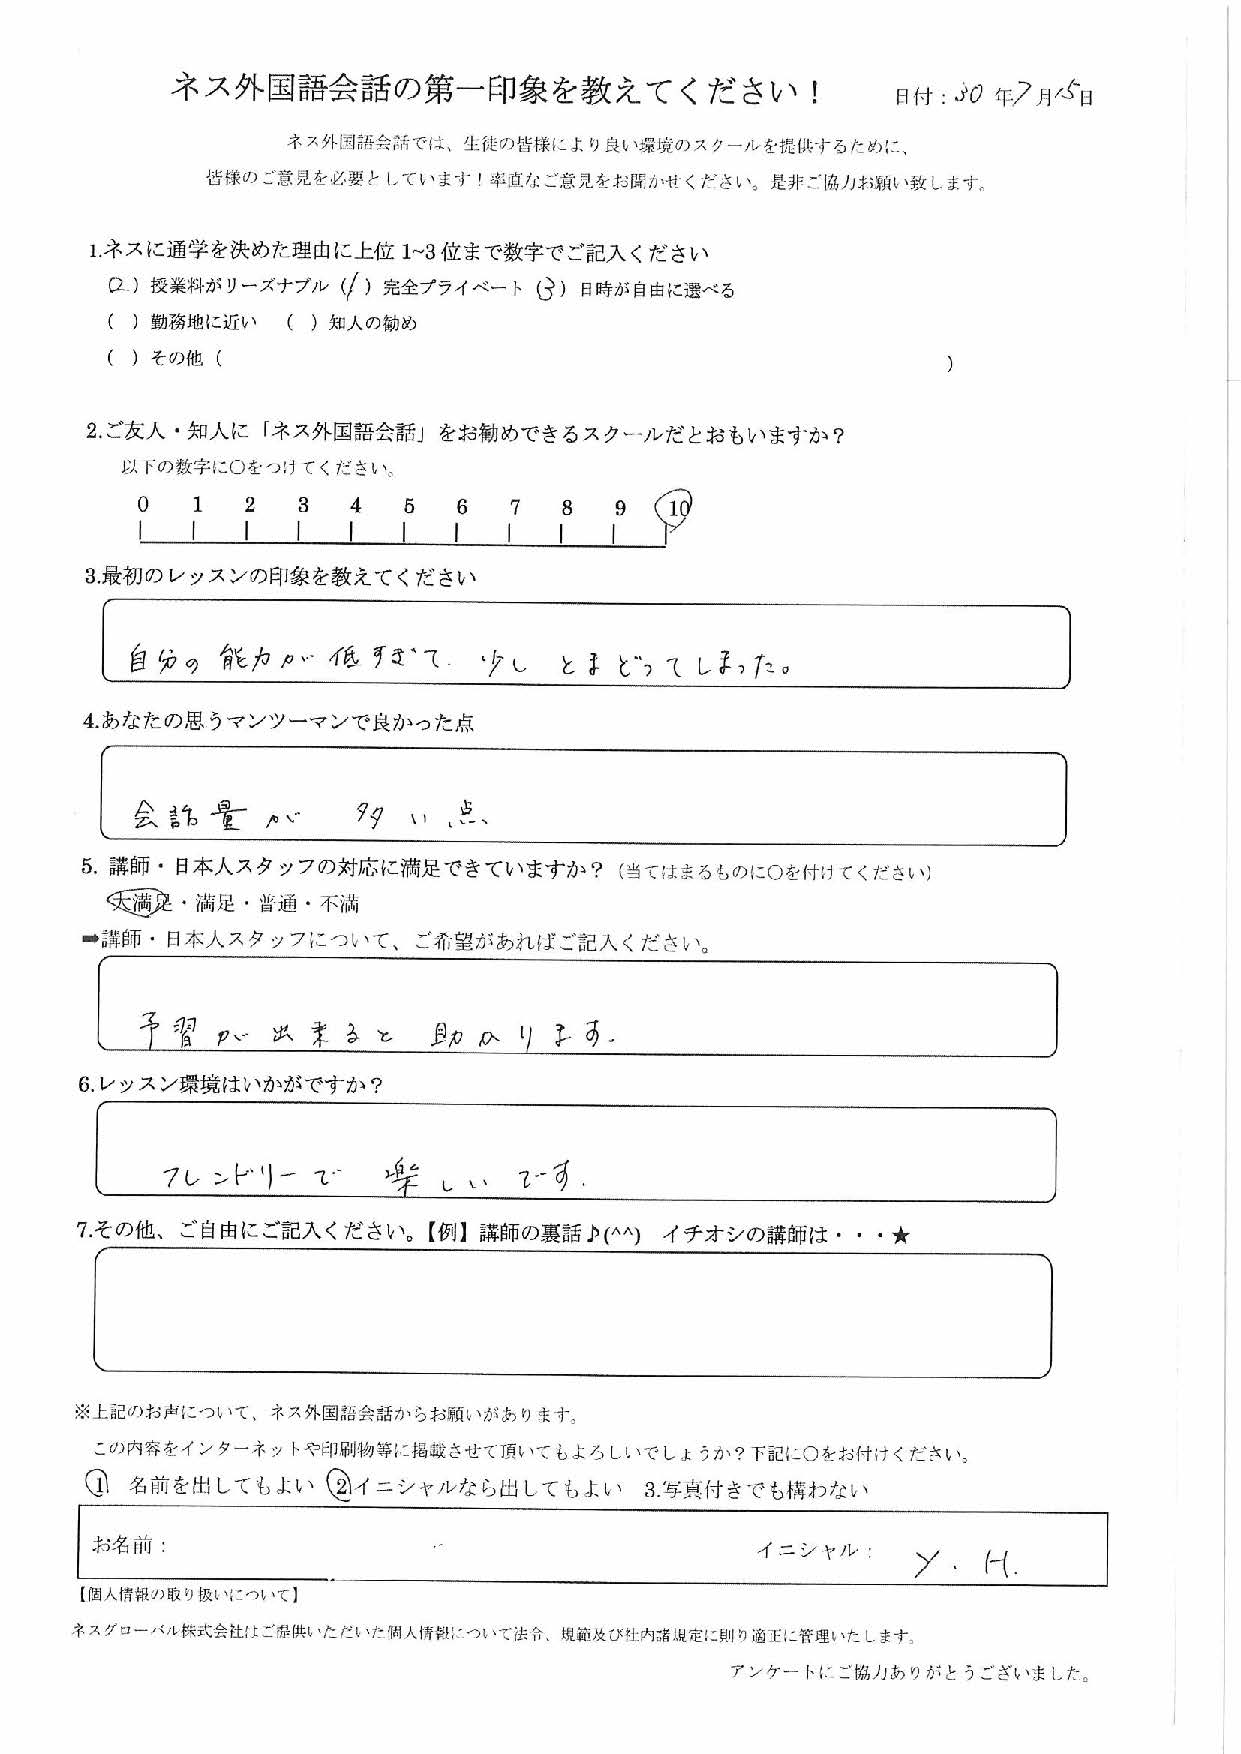 ネス外国語会話の第一印象を教えてください！ 日付：30 年7月15日
ネス外国語会話では、生徒の皆様により良い環境のスクールを提供するために、
皆様のご意見を必要としています！率直なご意見をお聞かせください。是非ご協力お願い致します。
1.ネスに通学を決めた理由に上位 1~3 位まで数字でご記入ください
（2）授業料がリーズナブル（1）完全プライベート（3）日時が自由に選べる
（ ）勤務地に近い （ ）知人の勧め
（ ）その他（ ）
2.ご友人・知人に「ネス外国語会話」をお勧めできるスクールだとおもいますか？
以下の数字に〇をつけてください。
0 1 2 3 4 5 6 7 8 9 10
3.最初のレッスンの印象を教えてください
自分の能力が低すぎて 少しとまどってしまった。
4.あなたの思うマンツーマンで良かった点
会話量が 多い点
5. 講師・日本人スタッフの対応に満足できていますか？（当てはまるものに〇を付けてください）
大満足・満足・普通・不満
➡講師・日本人スタッフについて、ご希望があればご記入ください。
予習が出来ると助かります.
6.レッスン環境はいかがですか？
フレンドリーで 楽しいです.
7.その他、ご自由にご記入ください。【例】講師の裏話♪(^^) イチオシの講師は・・・★
※上記のお声について、ネス外国語会話からお願いがあります。
この内容をインターネットや印刷物等に掲載させて頂いてもよろしいでしょうか？下記に〇をお付けください。
1 名前を出してもよい 2 イニシャルなら出してもよい 3.写真付きでも構わない
お名前： イニシャル： Y. H.
【個人情報の取り扱いについて】
ネスグローバル株式会社はご提供いただいた個人情報について法令、規範及び社内諸規定に則り適正に管理いたします。
アンケートにご協力ありがとうございました。